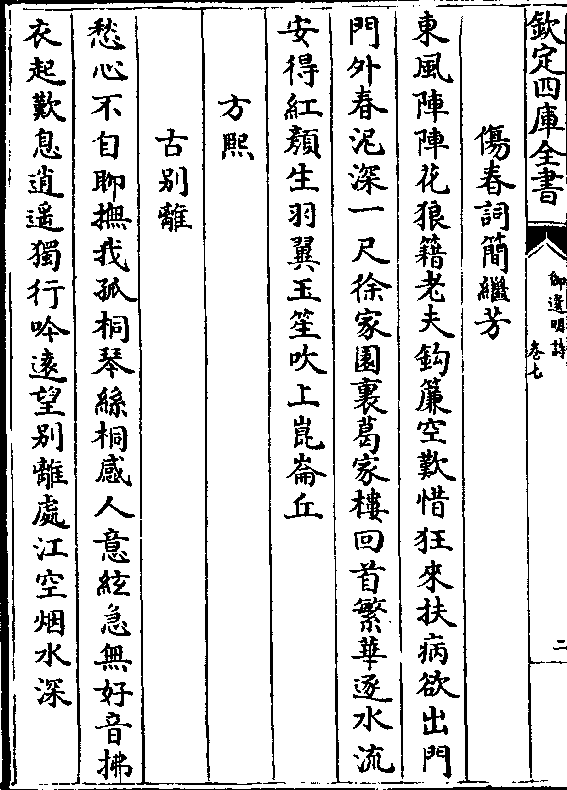 欽定四庫全書
御選明詩
卷七
二
傷春詞簡繼芳
東風陣陣花狼籍老夫鈎簾空歎惜狂來扶病欲出門
門外春泥深一尺徐家園裏葛家樓回首繁華逐水流
安得紅顏生羽翼玉笙吹上崑崙丘
方熙
古別離
愁心不自聊撫我孤桐琴絲桐感人意絃急無好音拂
衣起歎息逍遥獨行吟遠望別離處江空烟水深